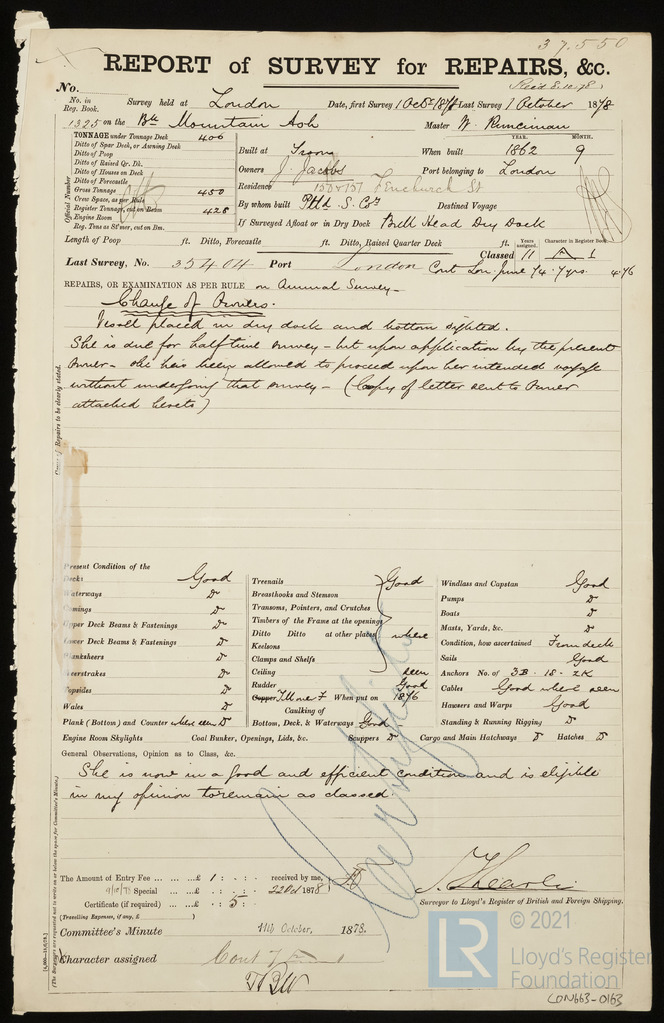 37,550
REPORT of SURVEY for REPAIRS, &c.
No.
No. in Reg. Book. Survey held at London Date, first Survey 1 Octr 1878 Last Survey 1 October 1878
1325 on the Bk Mountain Ash Master W. Runciman
TONNAGE under Tonnage Deck 406
Ditto of Spar Deck, or Awning Deck
Ditto of Poop
Ditto of Raised Qr. Dk.
Ditto of Houses on Deck
Ditto of Forecastle
Gross Tonnage 450
Crew Space, as per Rule
Register Tonnage, cut on Beam 428
Engine Room
Reg. Tons as St'mer, cut on Bm.
Official Number
YEAR. MONTH.
Built at When built 1862 9
Owners J. Jacobs Port belonging to London
Residence Fenchurch St
By whom built Destined Voyage
If Surveyed Afloat or in Dry Dock Bull Head Dry Dock
Length of Poop ft. Ditto, Forecastle ft. Ditto, Raised Quarter Deck ft.
Years assigned. Character in Register Book.
Classed 11 A 1
Last Survey, No. 35404 Port London Cont Lon. June 74. 7 yrs 4.76
REPAIRS, OR EXAMINATION AS PER RULE on Annual Survey-
Change of Owners.
Vessell placed in dry dock and bottom sighted.
She is due for half time survey - but upon application by the present
owner - she has been allowed to proceed upon her intended voyage
without undergoing that survey - (Copy of letter sent to owner
attached hereto)
Repairs to be clearly stated.
Present Condition of the
Decks Good
Waterways Do
Comings Do
Upper Deck Beams & Fastenings Do
Lower Deck Beams & Fastenings Do
Planksheers Do
Sheerstrakes Do
Topsides Do
Wales Do
Plank (Bottom) and Counter when seen Do
Engine Room Skylights Coal Bunker, Openings, Lids, &c. Scuppers Do Cargo and Main Hatchways Do Hatches Do
Treenails Good
Breasthooks and Stemson
Transoms, Pointers, and Crutches
Timbers of the Frame at the openings
Ditto Ditto at other places where
Keelsons
Clamps and Shelfs
Ceiling seen
Rudder Good
Copper When put on 1876
Caulking of
Bottom, Deck, & Waterways Good
Windlass and Capstan Good
Pumps Do
Boats Do
Masts, Yards, &c. Do
Condition, how ascertained From deck
Sails Good
Anchors No. of 3B. 1S. 2K
Cables Good where seen
Hawsers and Warps Good
Standing & Running Rigging Do
General Observations, Opinion as to Class, &c.
She is now in a good and efficient condition and is eligible
in my opinion to remain as classed.
The Amount of Entry Fee ... ... ...£ 1 : - : - received by me,
Special ... ...£ : : 22 Oct 1878
Certificate (if required) ... ...£ : 5 :
(Travelling Expenses, if any, £ )
Surveyor to Lloyd's Register of British and Foreign Shipping.
Committee's Minute 11th October, 1878.
Character assigned Cont 7
© 2021
LR
Lloyd's Register
Foundation
LDN663-0163